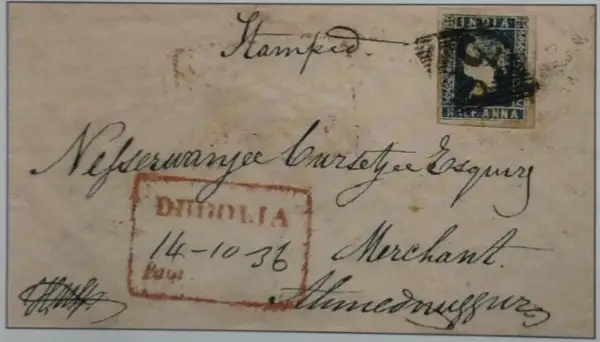 Stamped.
INDIA
HALF ANNA
Nesserwanjee Cursetjee Esquire
DHOOLIA
14-10-36
Merchant.
Paid
Ahmednuggur